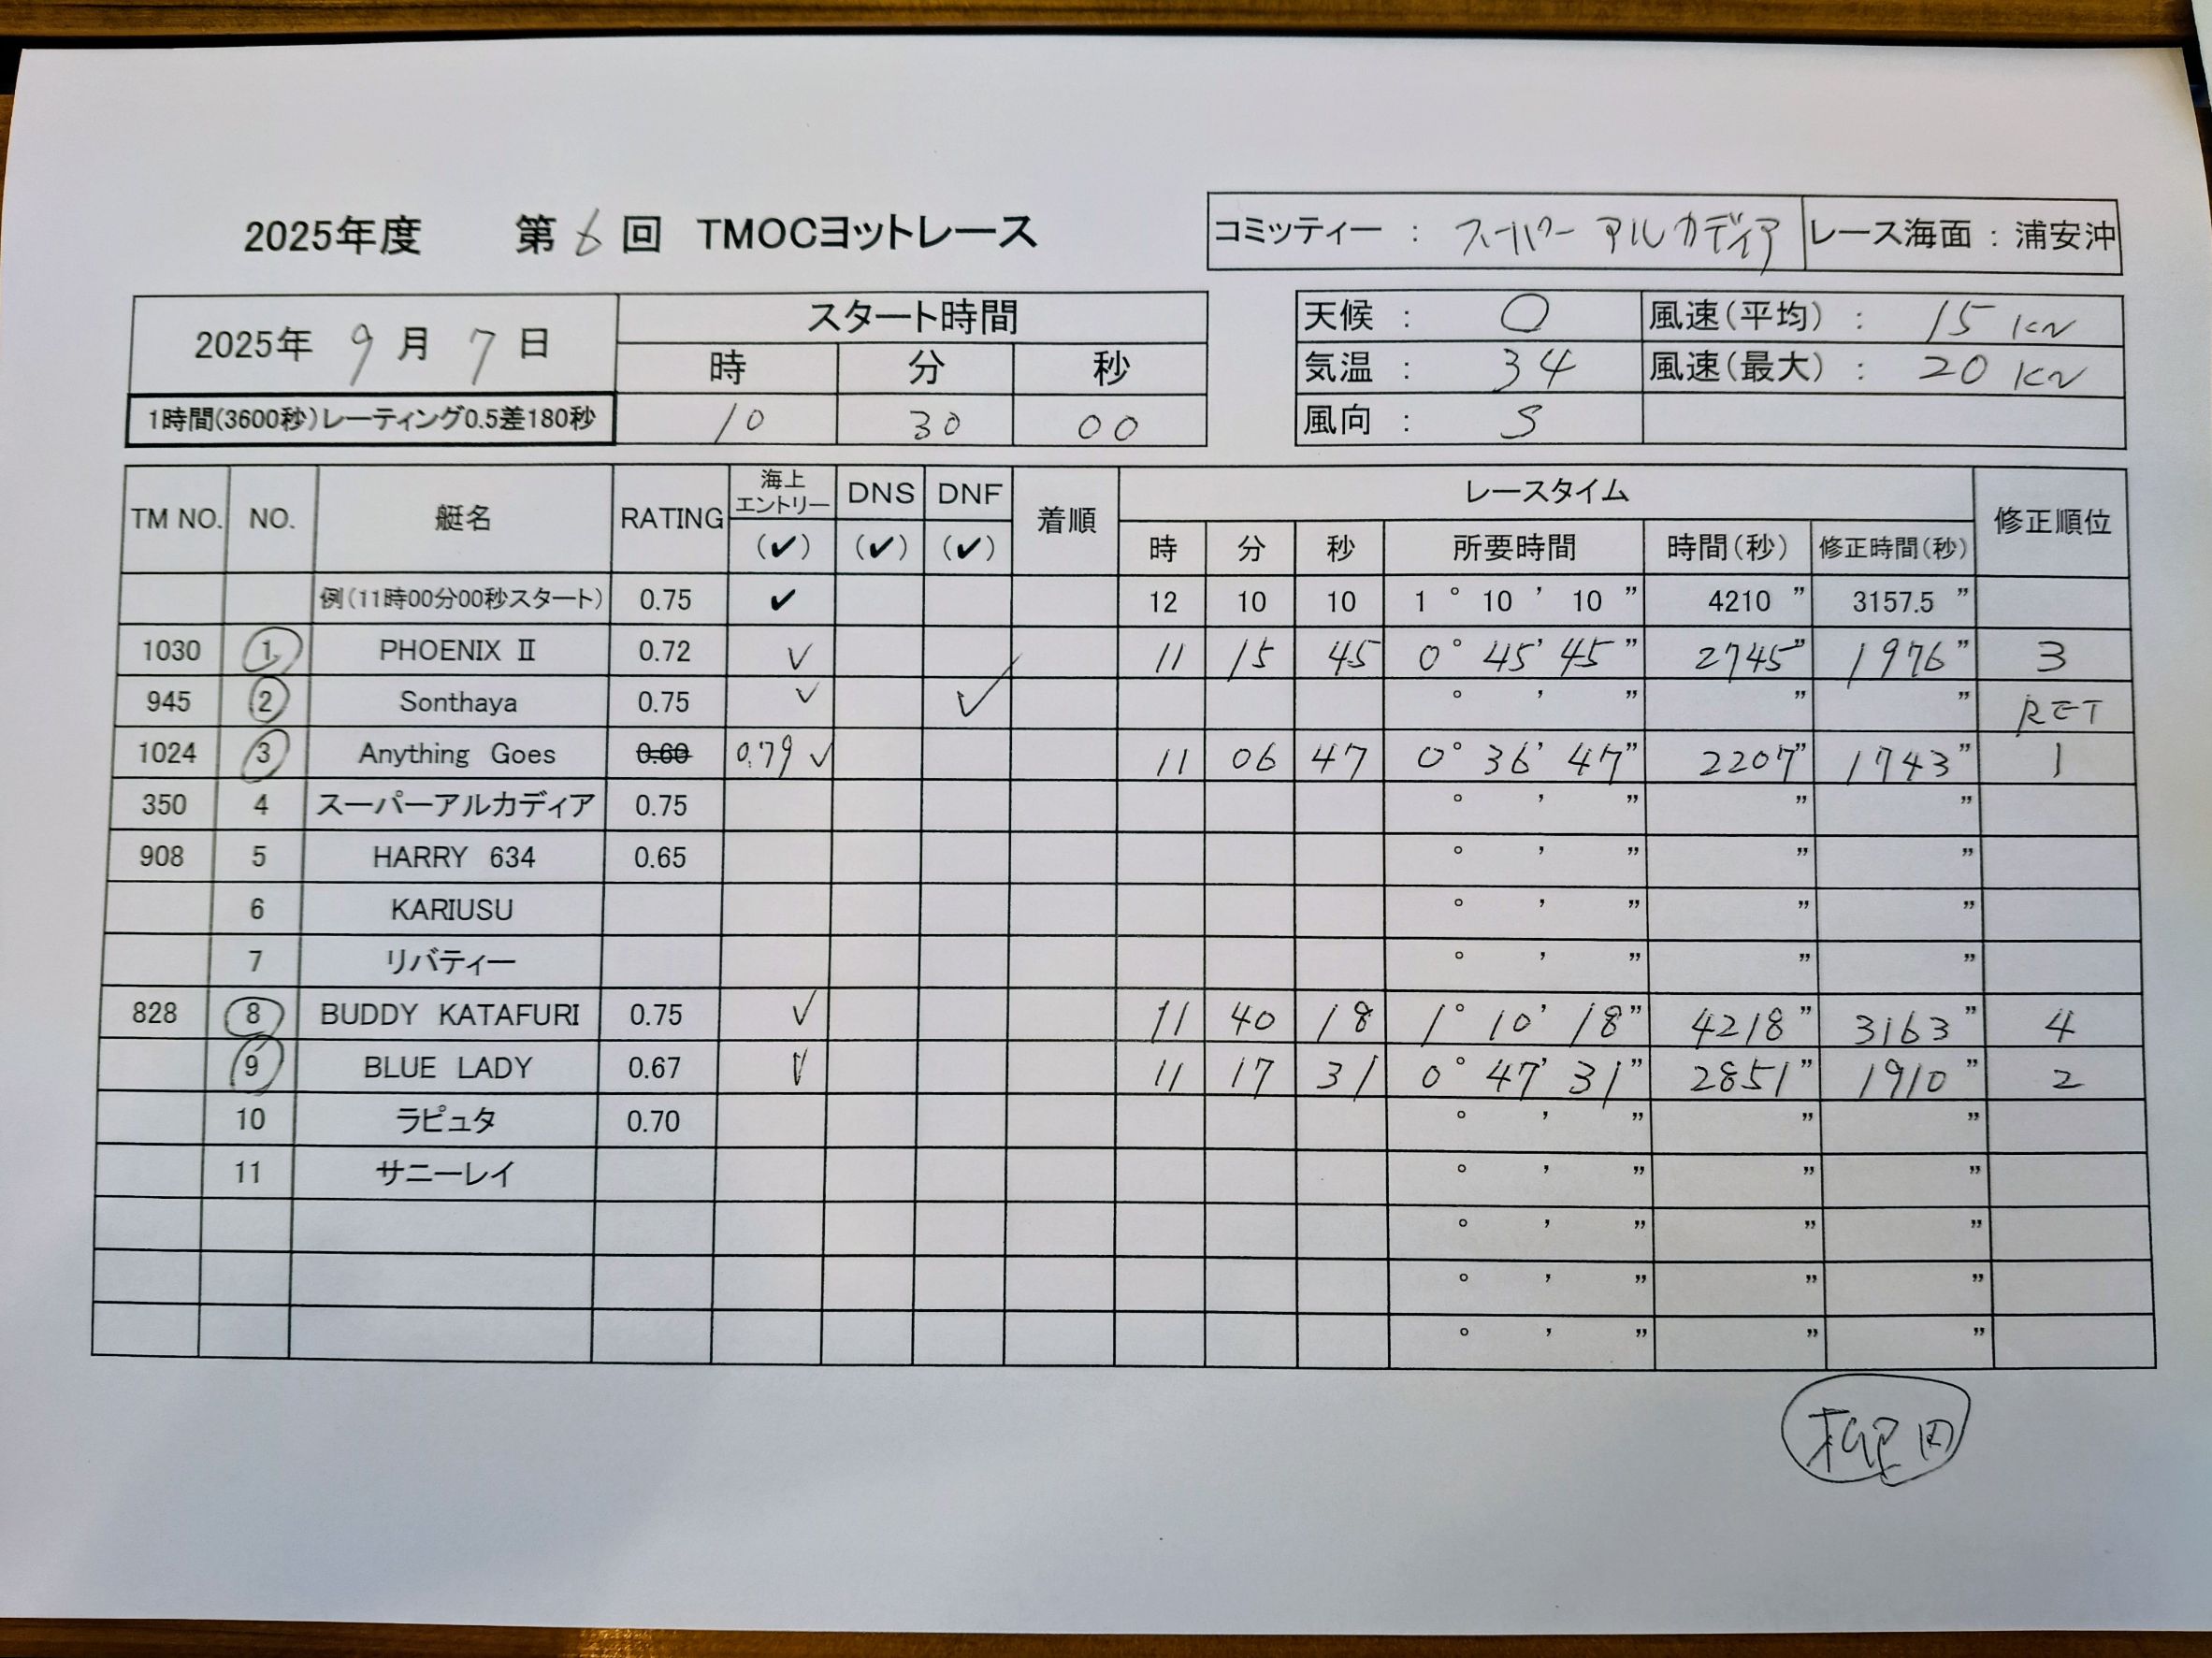 2025年度 第6回 TMOCヨットレース
コミッティー : スーパーアルカディア レース海面 : 浦安沖
2025年 9月 7日
1時間(3600秒)レーティング0.5差180秒
スタート時間
時 分 秒
10 30 00
天候 : ○ 風速(平均) : 15 KN
気温 : 34 風速(最大) : 20 KN
風向 : S
TM NO. NO. 艇名 RATING 海上エントリー (✔) DNS (✔) DNF (✔) 着順 レースタイム 修正順位
時 分 秒 所要時間 時間(秒) 修正時間(秒)
例(11時00分00秒スタート) 0.75 ✔ 12 10 10 1° 10' 10" 4210" 3157.5"
1030 1 PHOENIX Ⅱ 0.72 ✓ 11 15 45 0° 45' 45" 2745" 1976" 3
945 2 Sonthaya 0.75 ✓ ✓ ° ' " " " RET
1024 3 Anything Goes 0.60 0.79 ✓ 11 06 47 0° 36' 47" 2207" 1743" 1
350 4 スーパーアルカディア 0.75 ° ' " " "
908 5 HARRY 634 0.65 ° ' " " "
6 KARIUSU ° ' " " "
7 リバティー ° ' " " "
828 8 BUDDY KATAFURI 0.75 ✓ 11 40 18 1° 10' 18" 4218" 3163" 4
9 BLUE LADY 0.67 ✓ 11 17 31 0° 47' 31" 2851" 1910" 2
10 ラピュタ 0.70 ° ' " " "
11 サニーレイ ° ' " " "
° ' " " "
° ' " " "
° ' " " "